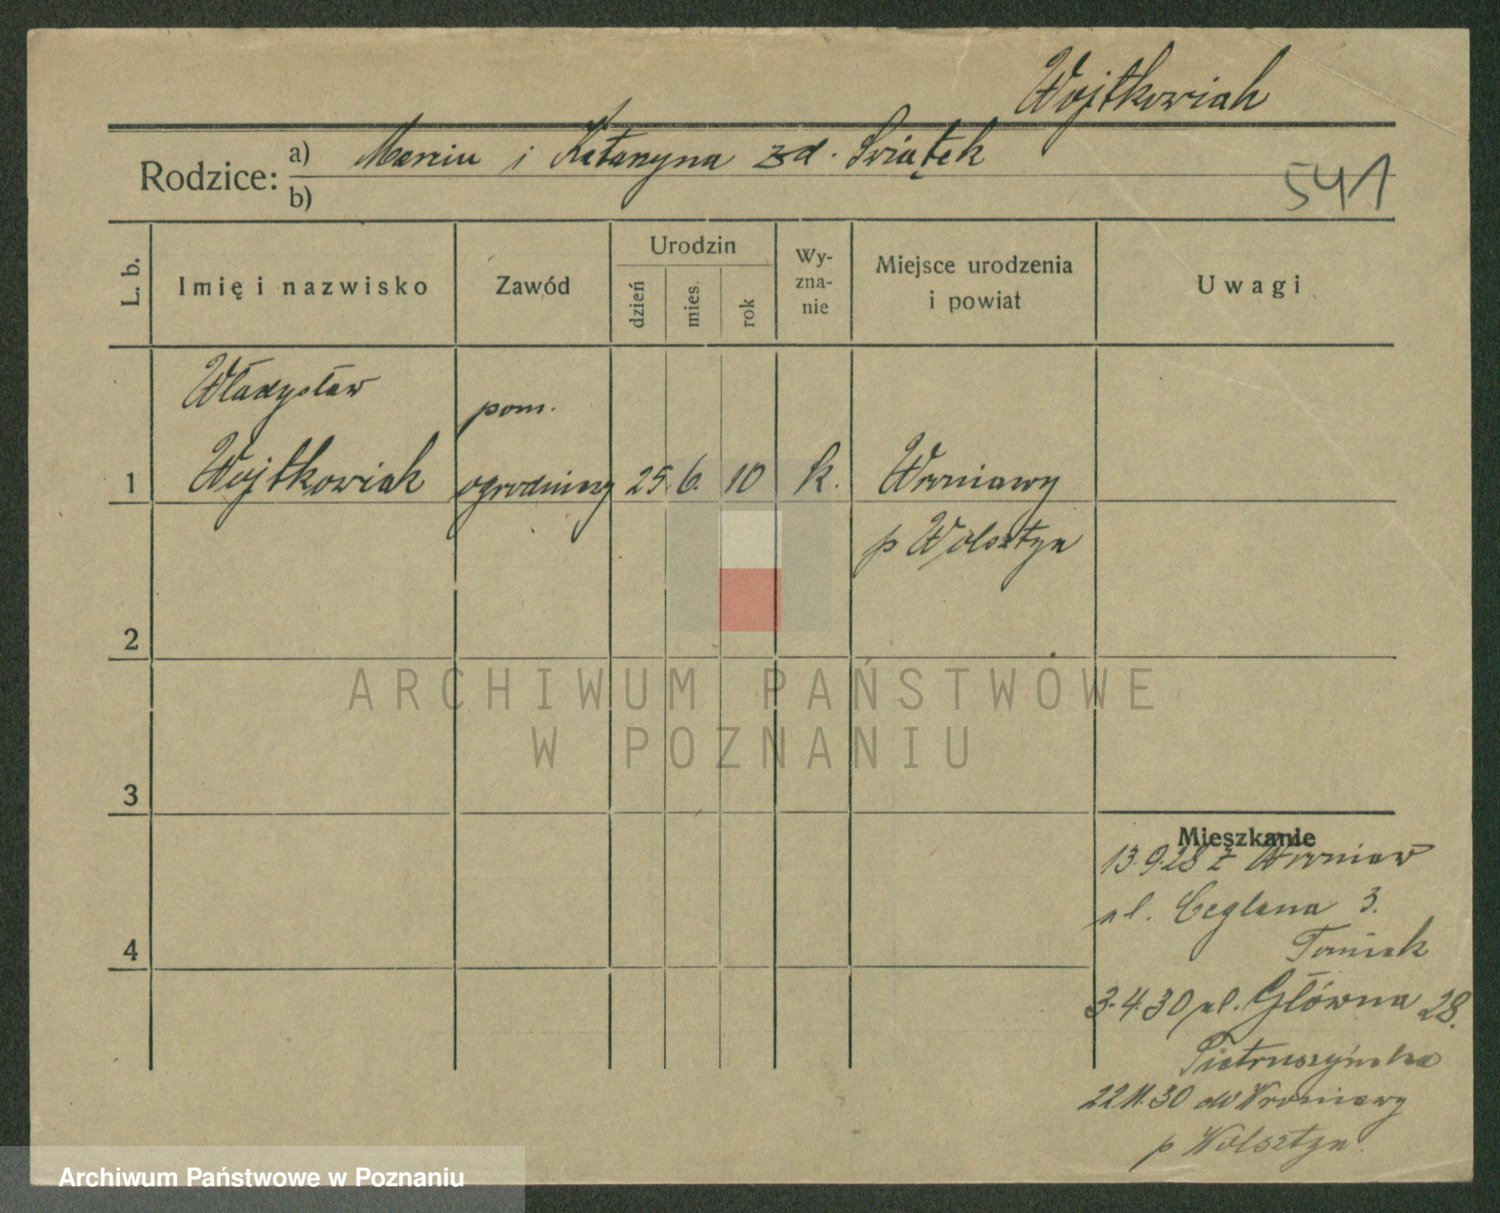 Wojtkowiak
Rodzice: a) Marcin i Katarzyna zd. Świątek
b)
541
L. b.
Imię i nazwisko
Zawód
Urodzin
dzień
mies.
rok
Wy-
zna-
nie
Miejsce urodzenia
i powiat
Uwagi
Władysław
pom.
1 Wojtkowiak ogrodniczy 25. 6. 10 k. Wroniawy
p Wolsztyn
2
3
4
Mieszkanie
13.9.28 z Wroniaw
ul. Ceglana 3.
Tomiak
3.4.30 ul. Główna 28.
Pietruszyńska
22.11.30 do Wroniawy
p Wolsztyn.
ARCHIWUM PAŃSTWOWE
W POZNANIU
Archiwum Państwowe w Poznaniu